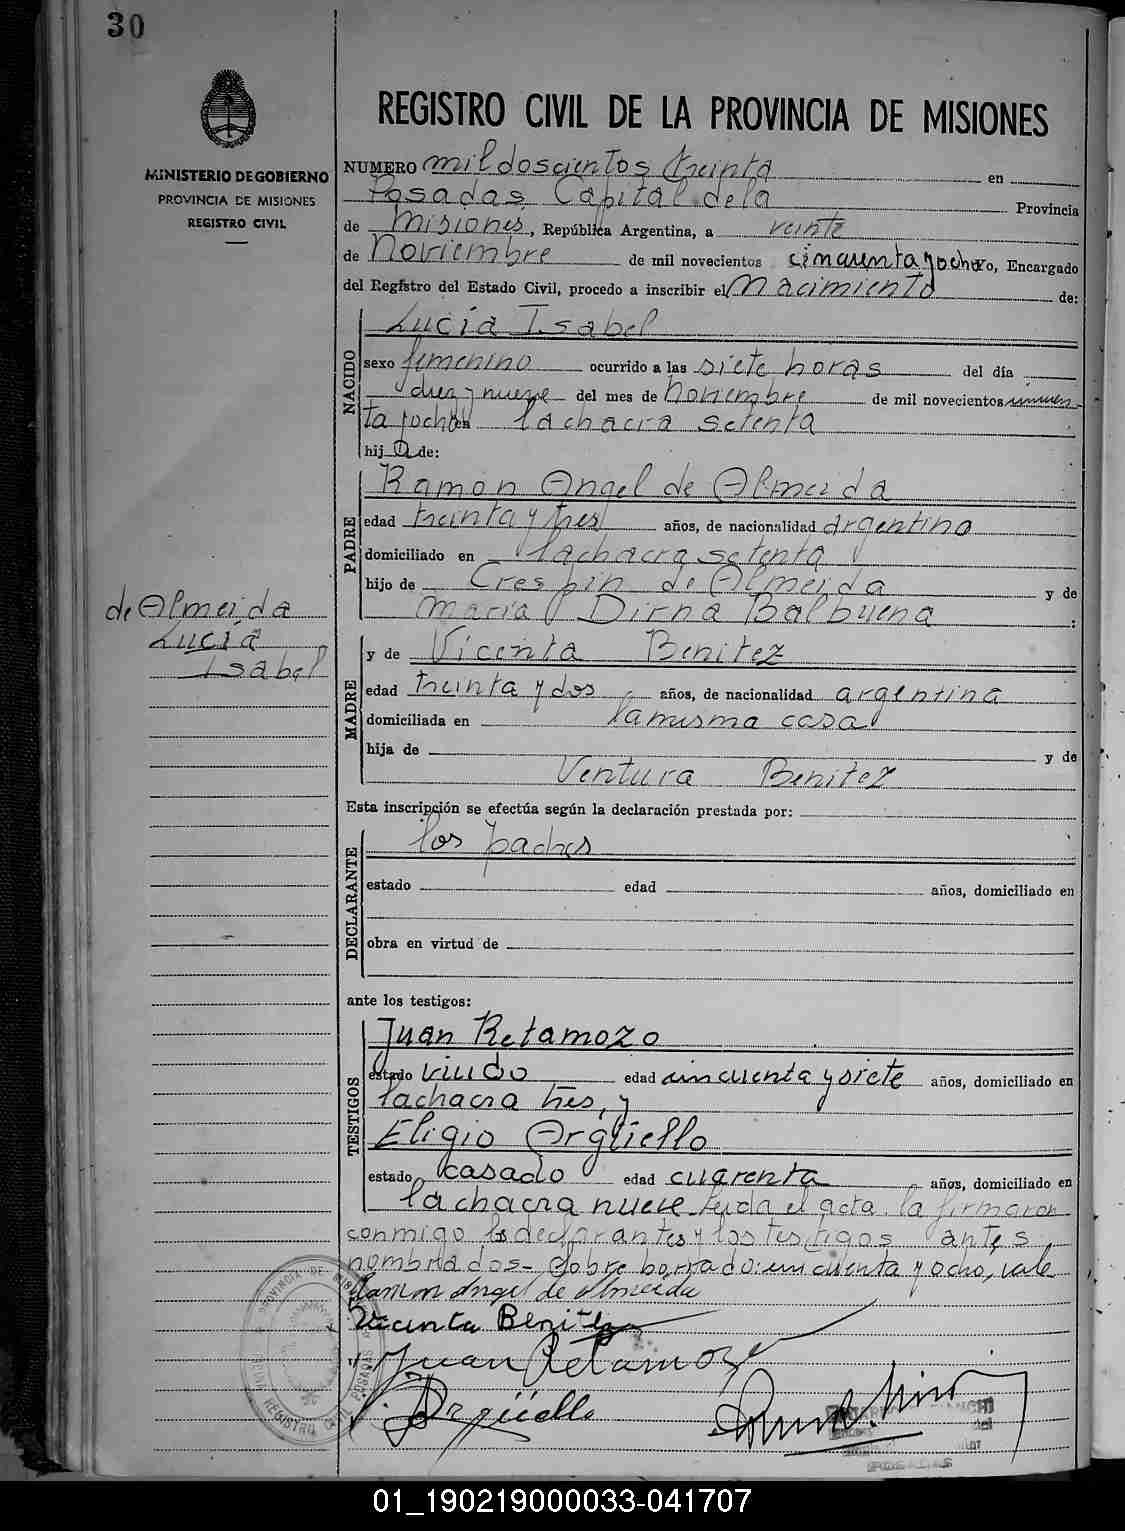 30
MINISTERIO DE GOBIERNO
PROVINCIA DE MISIONES
REGISTRO CIVIL
de Almeida
Lucía
Isabel
REGISTRO CIVIL DE LA PROVINCIA DE MISIONES
NUMERO mil doscientos treinta en
Posadas Capital de la Provincia
de Misiones, República Argentina, a veinte
de Noviembre de mil novecientos cincuenta y ocho yo, Encargado
del Registro del Estado Civil, procedo a inscribir el Nacimiento de:
NACIDO
Lucía Isabel
sexo femenino ocurrido a las siete horas del día
diez y nueve del mes de Noviembre de mil novecientos cincuen-
ta y ocho en la chacra setenta
hija de:
PADRE
Ramon Angel de Almeida
edad treinta y tres años, de nacionalidad argentino
domiciliado en la chacra setenta
hijo de Crespin de Almeida y de
Maria Dirna Balbuena :
MADRE
y de Vicenta Benitez
edad treinta y dos años, de nacionalidad argentina
domiciliada en la misma casa
hija de y de
Ventura Benitez
Esta inscripción se efectúa según la declaración prestada por:
DECLARANTE
los padres
estado edad años, domiciliado en
obra en virtud de
ante los testigos:
TESTIGOS
Juan Retamozo
estado viudo edad cincuenta y siete años, domiciliado en
la chacra tres, y
Eligio Argüello
estado casado edad cuarenta años, domiciliado en
la chacra nueve. Leida el acta la firmaron
conmigo los declarantes y los testigos antes
nombrados- Sobre borrado: cincuenta y ocho, vale
Ramon Angel de Almeida
Vicenta Benitez
Juan Retamozo
Argüello
PROVINCIA DE MISIONES
REGISTRO CIVIL POSADAS
01_190219000033-041707